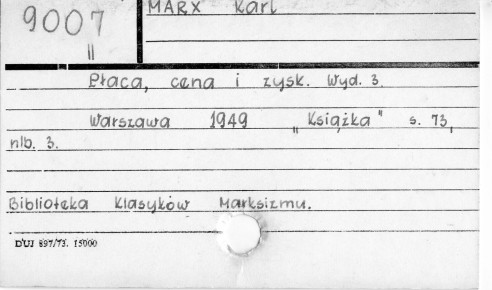 9007
II
MARX Karl
Płaca, cena i zysk. Wyd. 3.
Warszawa 1949 „Książka" s. 73,
nlb. 3.
Biblioteka Klasyków Marksizmu.
DUJ 897/73. 15000